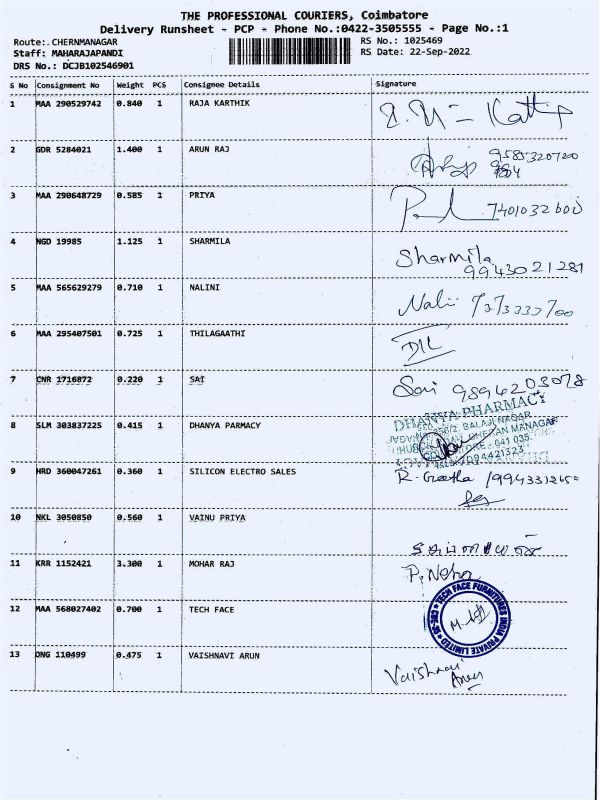 THE PROFESSIONAL COURIERS, Coimbatore
Delivery Runsheet - PCP - Phone No.:0422-3505555 - Page No.:1
Route:.CHERNMANAGAR RS No.: 1025469
Staff: MAHARAJAPANDI RS Date: 22-Sep-2022
DRS No.: DCJB102546901
S No Consignment No Weight PCS Consignee Details Signature
1 MAA 290529742 0.840 1 RAJA KARTHIK
2 GDR 5284021 1.400 1 ARUN RAJ 9585320720
3 MAA 290648729 0.585 1 PRIYA 7401032600
4 NGD 19985 1.125 1 SHARMILA Sharmila
9943021281
5 MAA 565629279 0.710 1 NALINI Nalii
6 MAA 295407501 0.725 1 THILAGAATHI
7 CNR 1716872 0.220 1 SAI Sai 9894203078
8 SLM 303837225 0.415 1 DHANYA PARMACY DHANYA PHARMACY
BALAJI NAGAR
641 035.
9 HRD 360047261 0.360 1 SILICON ELECTRO SALES R. Geetha /9943312650
10 NKL 3050850 0.560 1 VAINU PRIYA
11 KRR 1152421 3.300 1 MOHAR RAJ
12 MAA 568027402 0.700 1 TECH FACE TECH FACE FURNITURES INDIA PRIVATE LIMITED
13 ONG 110499 0.475 1 VAISHNAVI ARUN Vaishnavi
Arun